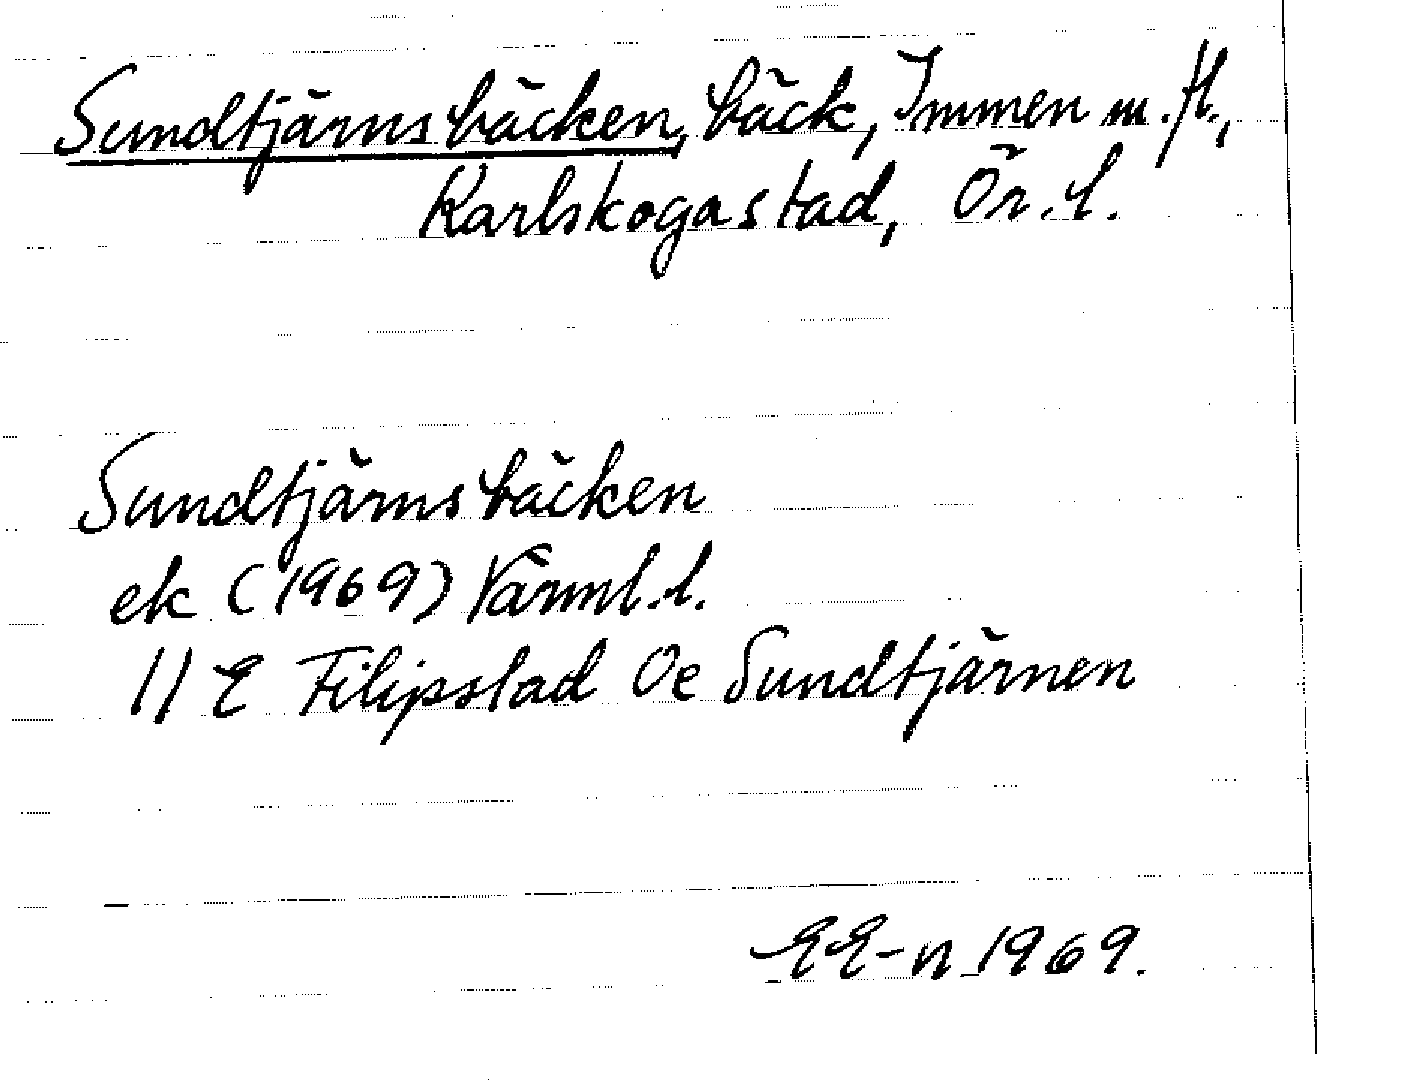 Sundtjärnsbäcken, bäck, Immen m.fl.,
Karlskogastad, Ör.l.
Sundtjärnsbäcken
ek (1969) Värml.l.
11 E Filipstad Oe Sundtjärnen
EE-n 1969.